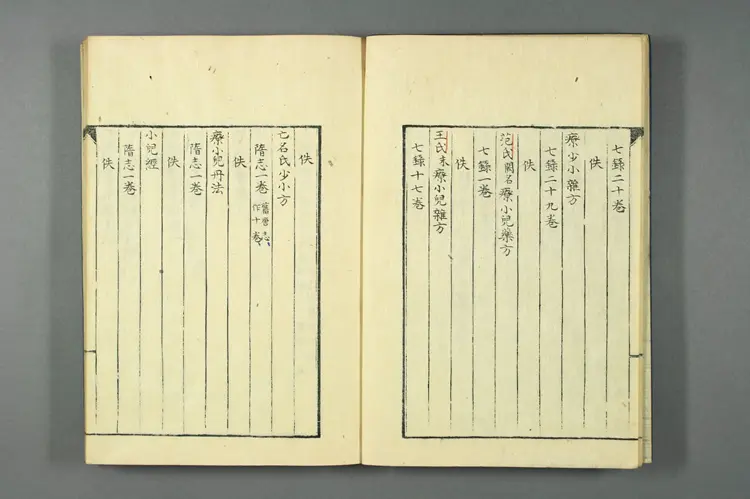 七錄二十卷
佚
療少小雜方
七錄二十九卷
佚
范氏闕名療小兒藥方
七錄一卷
佚
王氏末療小兒雜方
七錄十七卷
佚
亡名氏少小方
隋志一卷舊唐志作十卷
佚
療小兒丹法
隋志一卷
佚
小兒經
隋志一卷
佚